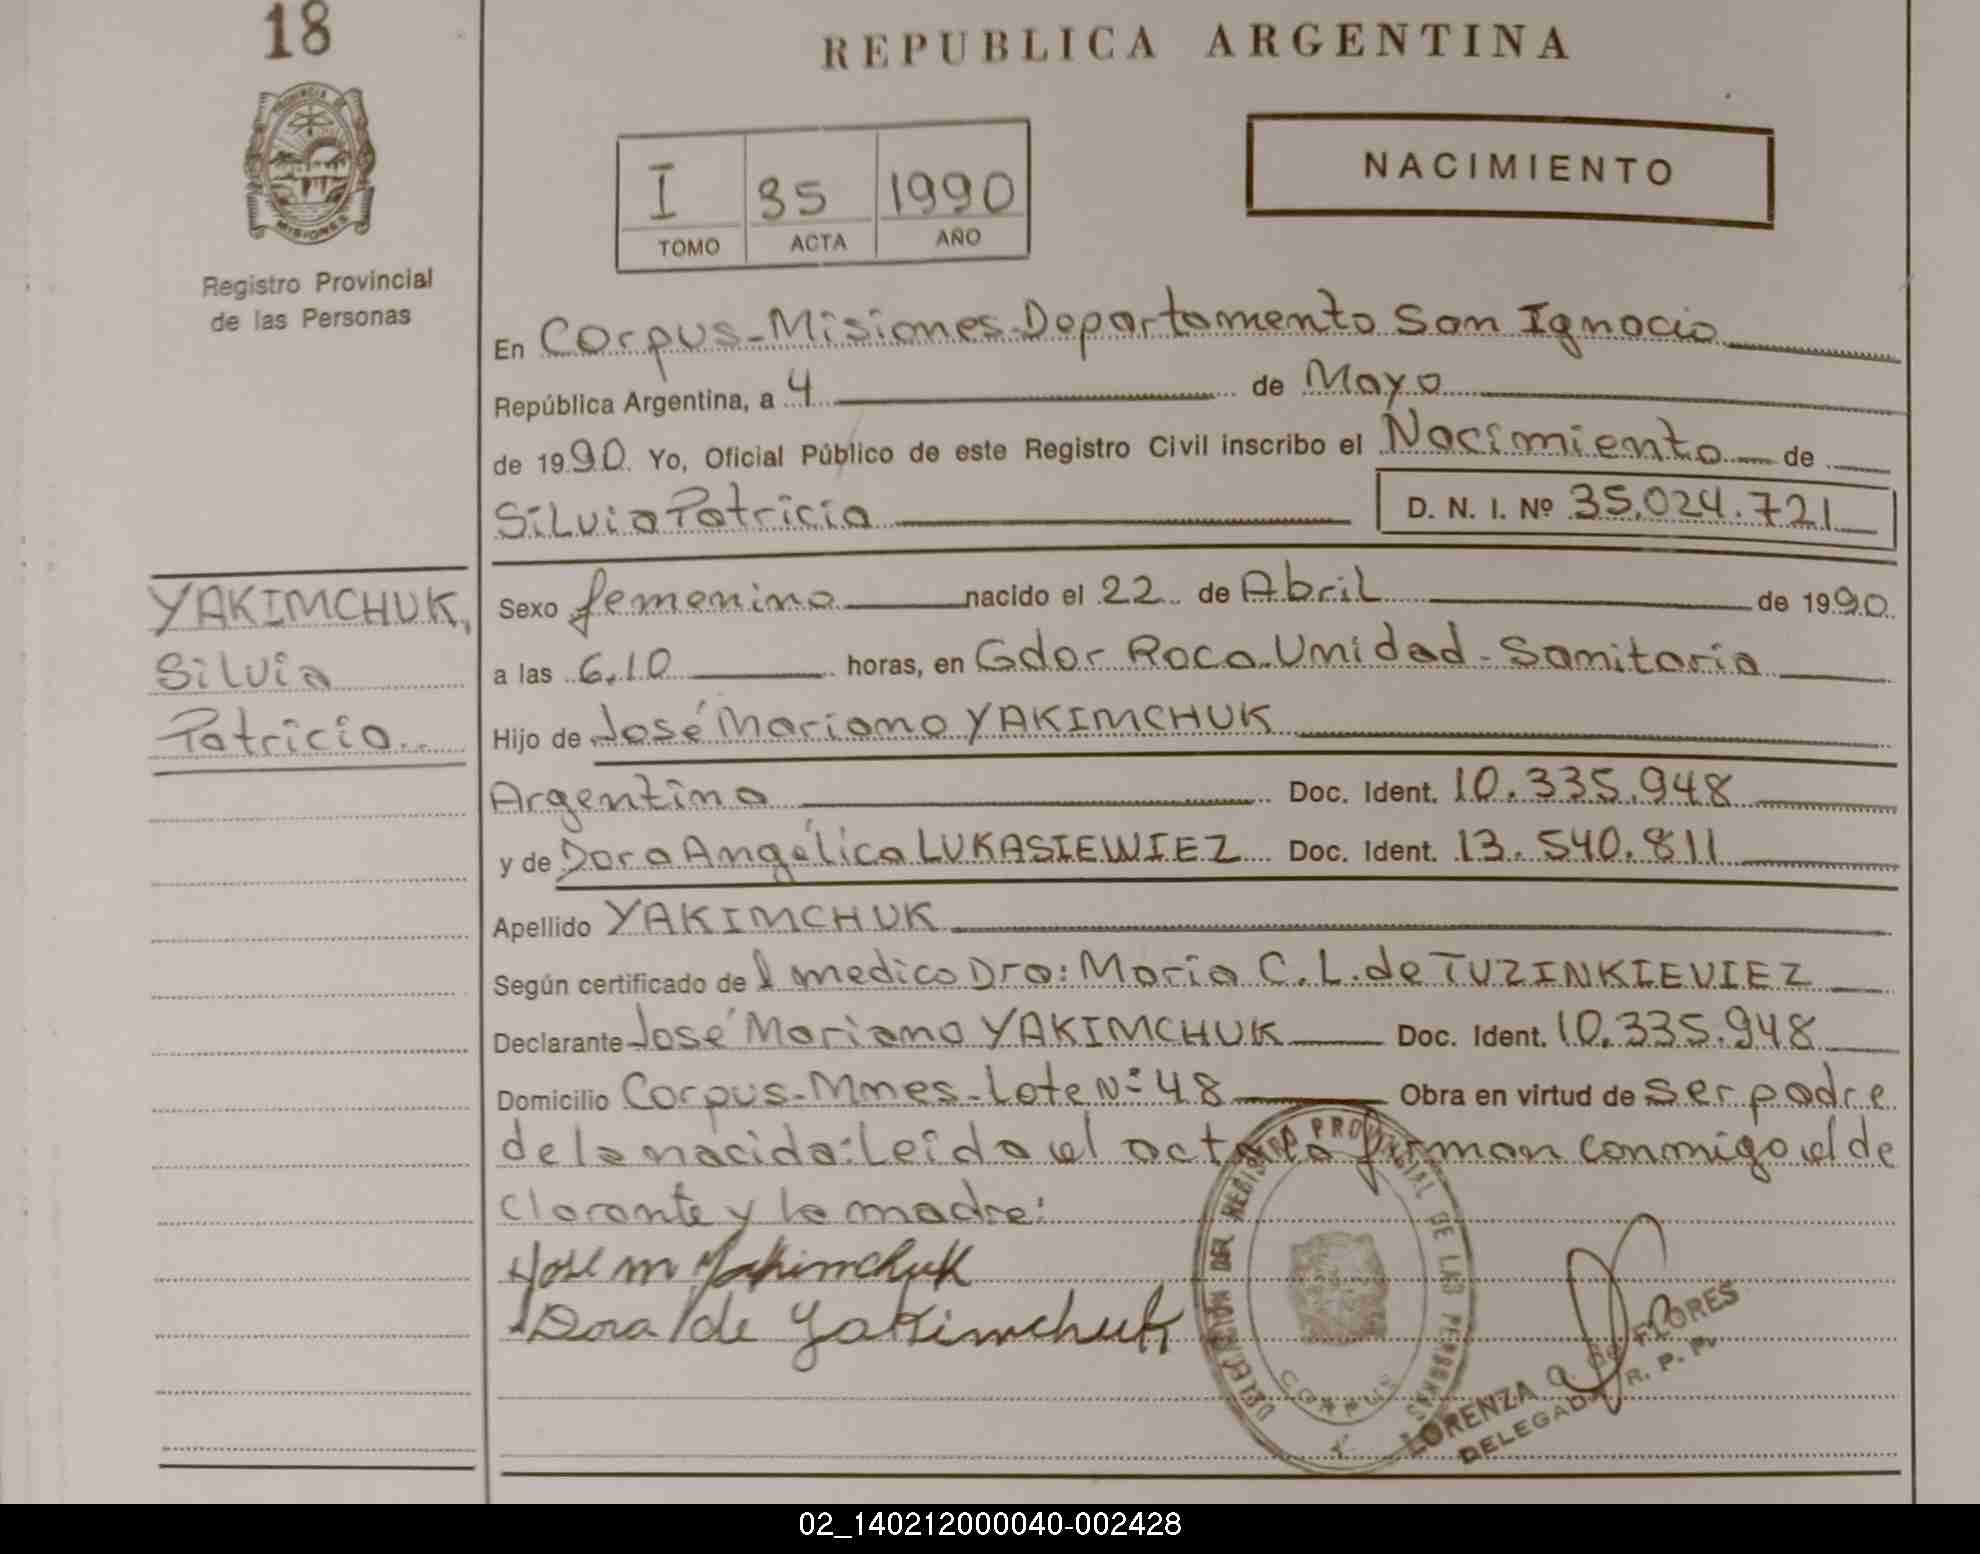 18
REPUBLICA ARGENTINA
PROVINCIA DE
MISIONES
Registro Provincial
de las Personas
I 35 1990
TOMO ACTA AÑO
NACIMIENTO
En Corpus-Misiones-Departamento San Ignacio
República Argentina, a 4 de Mayo
de 1990. Yo, Oficial Público de este Registro Civil inscribo el Nacimiento de
Silvia Patricia D. N. I. Nº 35.024.721
YAKIMCHUK,
Silvia
Patricia
Sexo femenino nacido el 22 de Abril de 1990
a las 6.10 horas, en Gdor Roca-Unidad-Sanitaria
Hijo de José Mariano YAKIMCHUK
Argentino Doc. Ident. 10.335.948
y de Dora Angélica LUKASIEWIEZ Doc. Ident. 13.540.811
Apellido YAKIMCHUK
Según certificado del medico Dra: Maria C.L. de TUZINKIEVIEZ
Declarante José Mariano YAKIMCHUK Doc. Ident. 10.335.948
Domicilio Corpus-Mnes-Lote Nº 48 Obra en virtud de ser padre
de la nacida: Leida el acta la firman conmigo el de
clarante y la madre:
José m Yakimchuk
Dora de Yakimchuk
DELEGACIÓN DEL REGISTRO PROVINCIAL DE LAS PERSONAS
CORPUS
LORENZA de FLORES
DELEGADA R. P. P.
02_140212000040-002428